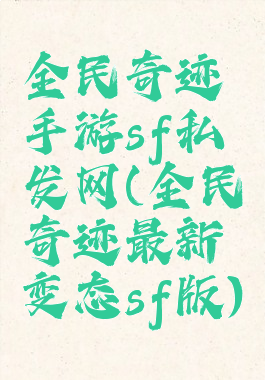 全民奇迹
手游sf私
发网(全民
奇迹最新
变态sf版)